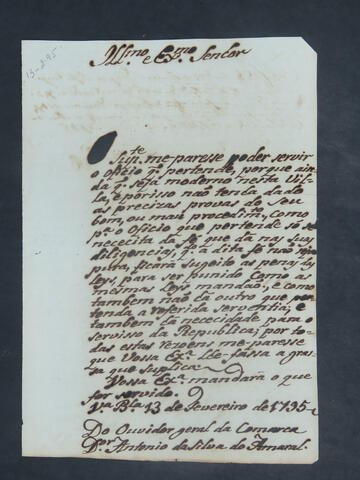 13-2-95
Illmo. e Exmo. Senhor
O Supte. me paresse poder servir
o officio q. pertende, porque ainda
q. seja moderno nesta Vil-
la, e porisso não tenha dado
as precizas provas do seu
bom, ou mau procedimto., como
pa. o Officio que pertende só se
nececita da fé que dá nas suas
diligencias, q. a dita fé não for
pura, ficará sugeito as penas das
Leys, para ser punido como as
mesmas Leys mandão, e como
tambem não há outro que per-
tenda a referida serventia, e
tambem há nececidade para o
servisso da Republica, por to-
das estas rezoens me-paresse
que Vossa Exa. lhe-fassa a gra-
ça que suplica.
Vossa Exa. mandará o que
for servido.
Va. Bla. 13 de Fevereiro de 1795
Do Ouvidor geral da Comarca
Dor. Antonio da Silva do Amaral.